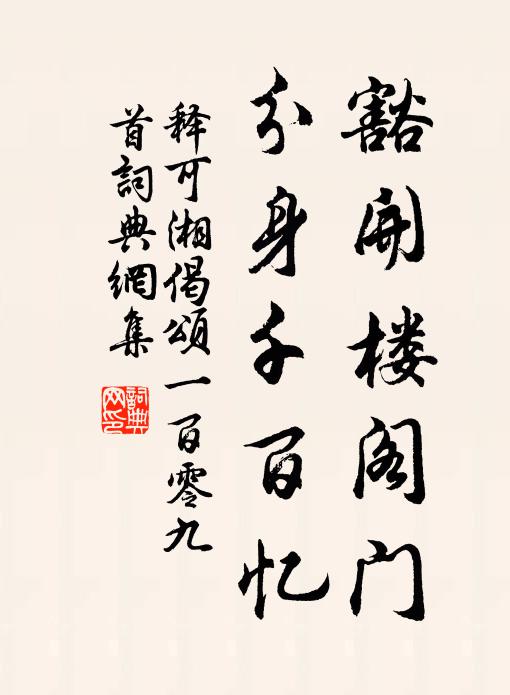 豁开楼阁门
分身千百忆
释可湘偈颂一百零九
首词典網集
詞典網印